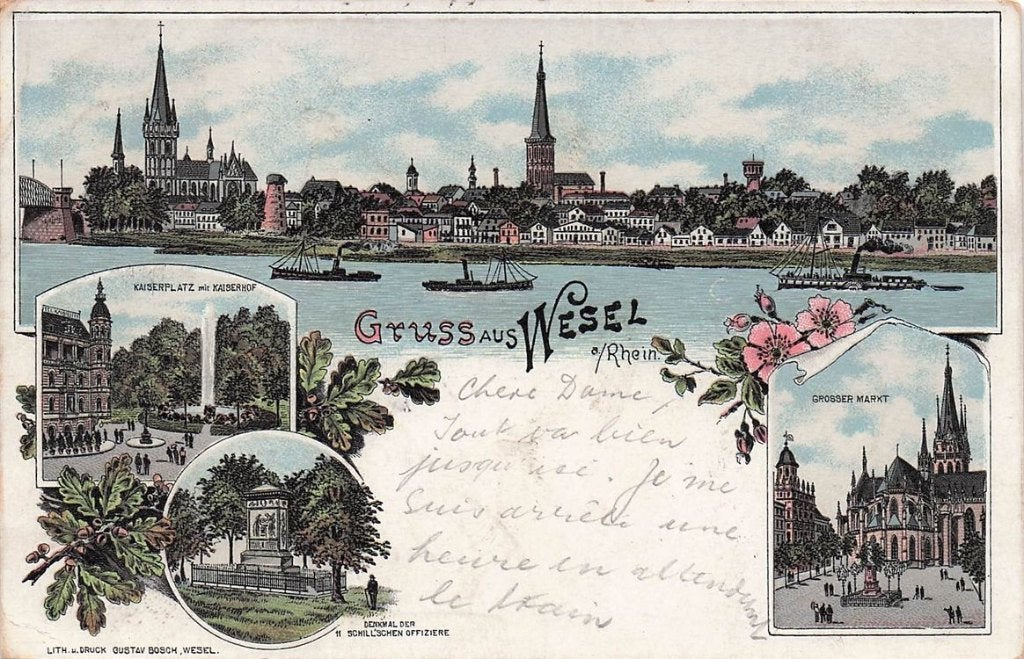 KAISERPLATZ mit KAISERHOF
Gruss aus Wesel
a/Rhein.
GROSSER MARKT
Chere Dame,
Tout va bien
jusqu'ici. Je me
suis arrêté une
heure en attendant
le train
DENKMAL DER
11 SCHILL'SCHEN OFFIZIERE
LITH. u. DRUCK GUSTAV BOSCH, WESEL.